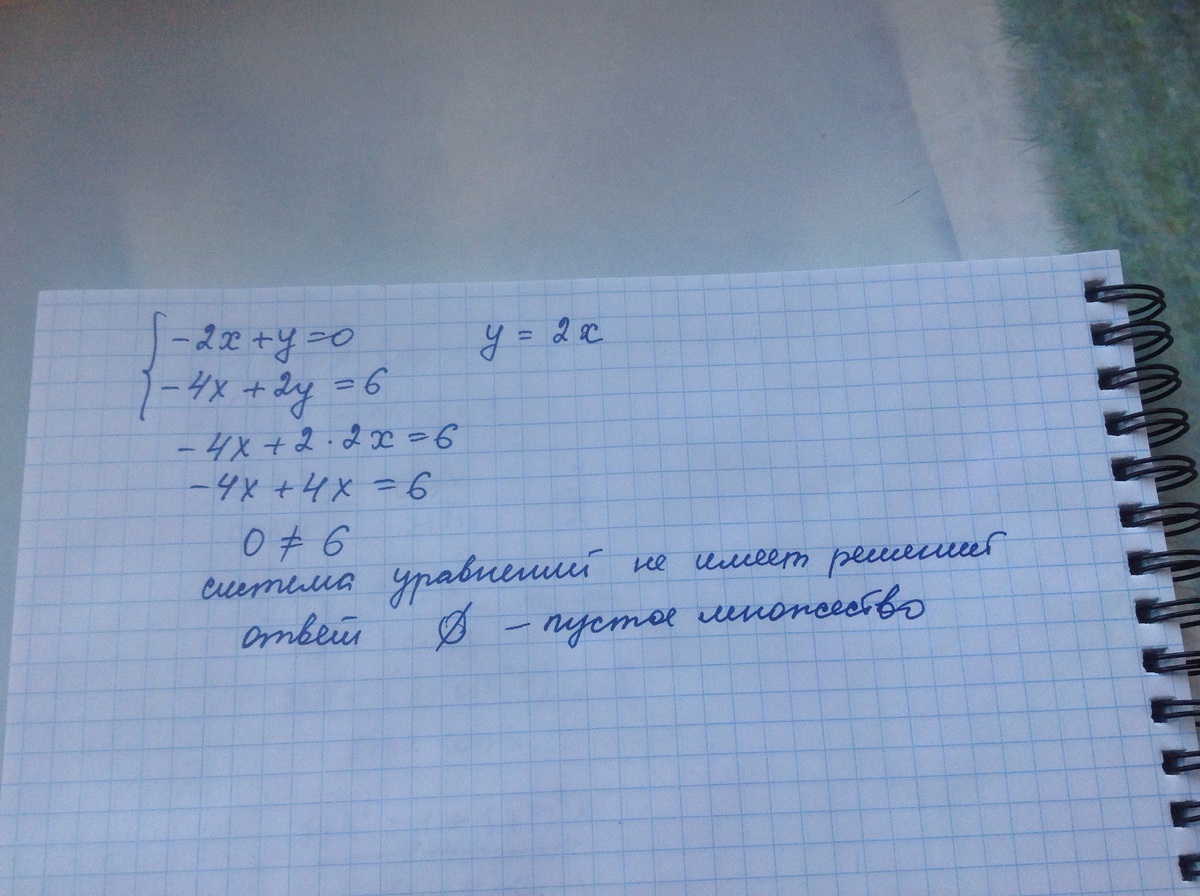 -2x+y=0 y = 2x
-4x+2y = 6
-4x+2·2x = 6
-4x+4x = 6
0 ≠ 6
система уравнений не имеет решений
ответ ∅ – пустое множество